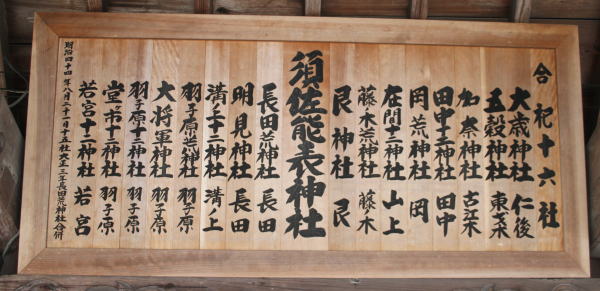 合杞十六社
大歳神社 仁後
五穀神社 東㐂来
加奈神社 古江木
田中十二神社 田中
岡荒神社 岡
在間十二神社 山上
藤ノ木荒神社 藤ノ木
艮神社 艮
須佐能表神社
長田荒神社 長田
明見神社 長田
溝ノ上十二神社 溝ノ上
羽子原荒神社 羽子原
大将軍神社 羽子原
羽子原十二神社 羽子原
堂ヶ市十二神社 羽子原
若宮十二神社 若宮
明治四十四年八月二十一日十五社大正三年長田荒神社合併